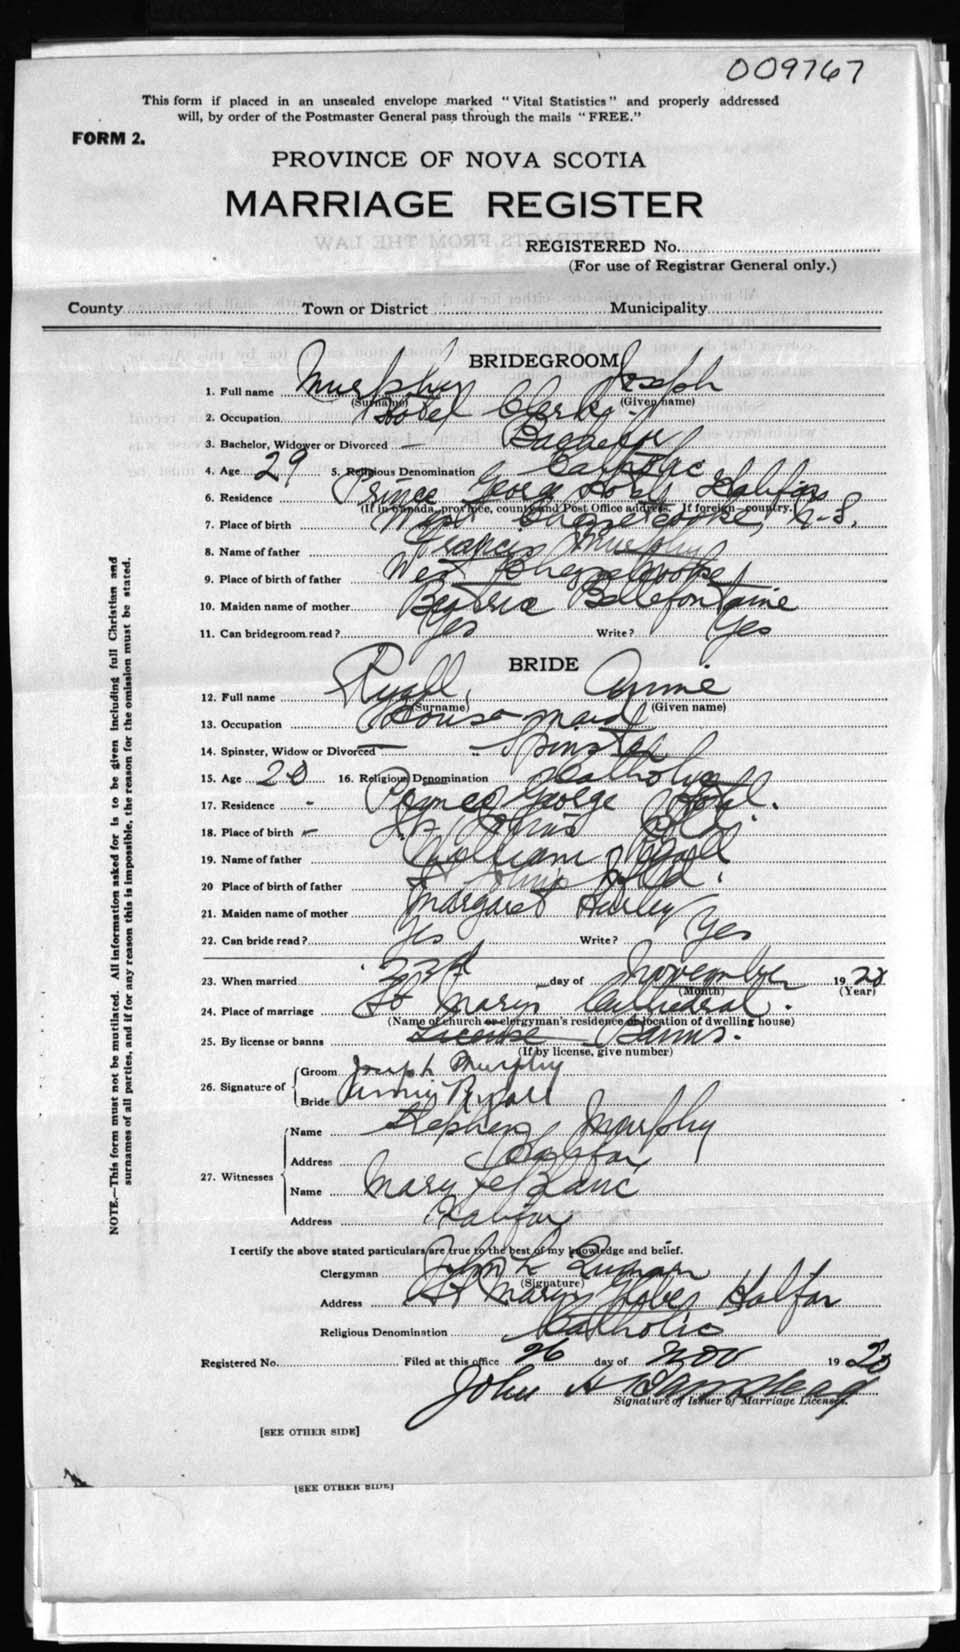 009767
This form if placed in an unsealed envelope marked "Vital Statistics" and properly addressed
will, by order of the Postmaster General pass through the mails "FREE."
FORM 2.
PROVINCE OF NOVA SCOTIA
MARRIAGE REGISTER
REGISTERED No.
(For use of Registrar General only.)
County Town or District Municipality
BRIDEGROOM
1. Full name Murphy Joseph
(Surname) (Given name)
2. Occupation Hotel Clerk
3. Bachelor, Widower or Divorced Bachelor
4. Age 29 5. Religious Denomination Catholic
6. Residence Prince George Hotel Halifax
(If in Canada, province, county and Post Office address. If foreign—country.)
7. Place of birth West Chezzetcooke, N-S.
8. Name of father Francis Murphy
9. Place of birth of father West Chezzetcooke
10. Maiden name of mother Beatrice Bellefontaine
11. Can bridegroom read? Yes Write? Yes
BRIDE
12. Full name Ryall, Annie
(Surname) (Given name)
13. Occupation House-maid
14. Spinster, Widow or Divorced Spinster
15. Age 20 16. Religious Denomination Catholic
17. Residence - Prince George Hotel.
18. Place of birth St Johns Nfld.
19. Name of father William Ryall
20 Place of birth of father St Johns Nfld.
21. Maiden name of mother Margaret Hurley
22. Can bride read? Yes Write? Yes
23. When married 23rd day of November 1920
(Month) (Year)
24. Place of marriage St Marys Cathedral.
(Name of church or clergyman's residence or location of dwelling house)
25. By license or banns License Banns.
(If by license, give number)
26. Signature of Groom Joseph Murphy
Bride Annie Ryall
27. Witnesses
Name Stephen Murphy
Address Halifax
Name Mary LeBlanc
Address Halifax
I certify the above stated particulars are true to the best of my knowledge and belief.
Clergyman John L Quinan
(Signature)
Address St Marys Glebe Halifax
Religious Denomination Catholic
Registered No. Filed at this office 26 day of Nov 1920
John H
Signature of Issuer of Marriage Licenses.
[SEE OTHER SIDE]
[SEE OTHER SIDE]
NOTE.—This form must not be mutilated. All information asked for is to be given including full Christian and
surnames of all parties, and if for any reason this is impossible, the reason for the omission must be stated.